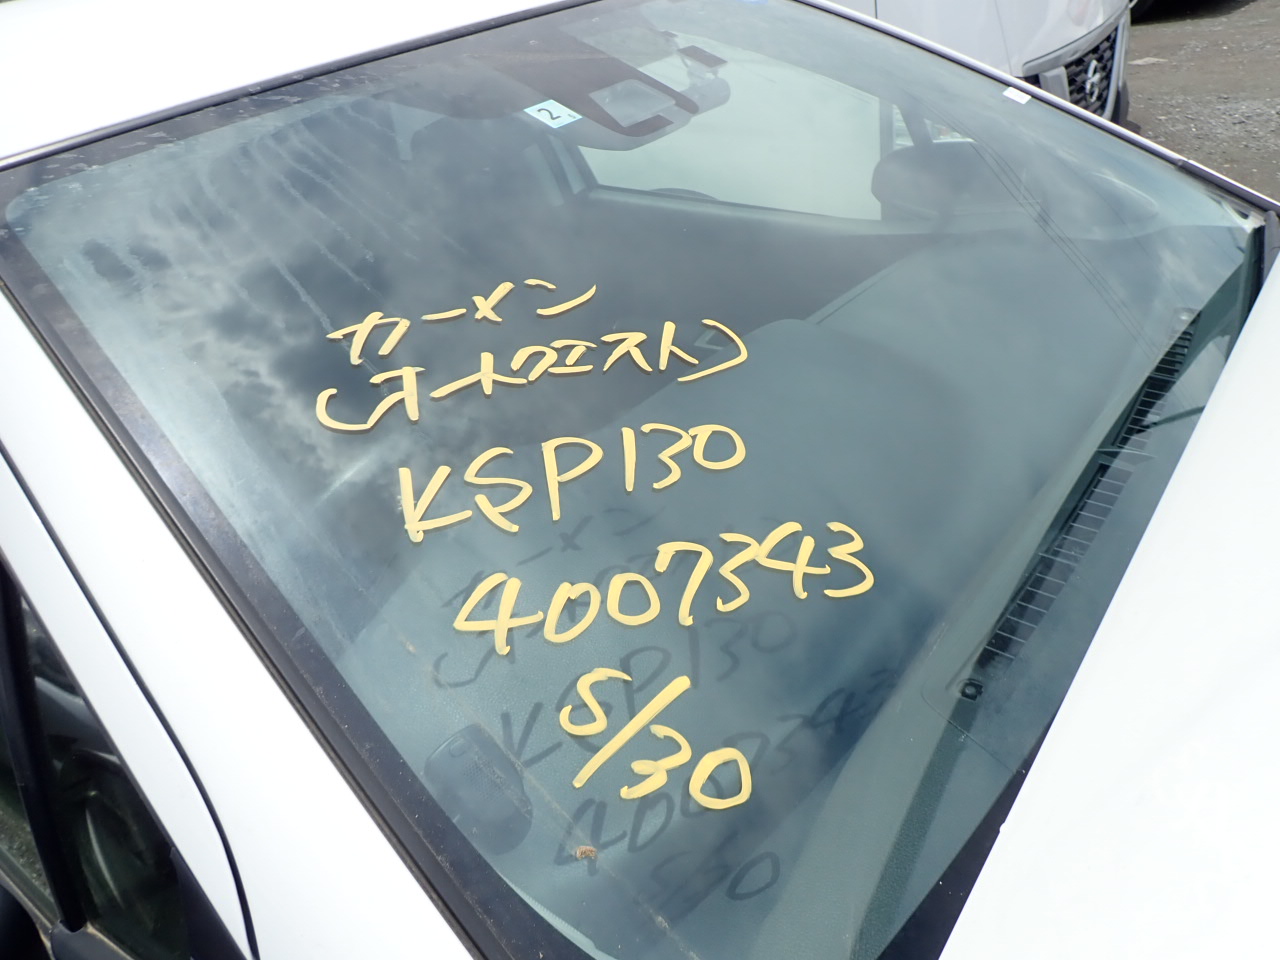 2
カーメン
(オートクエスト)
KSP130
4007343
5/30